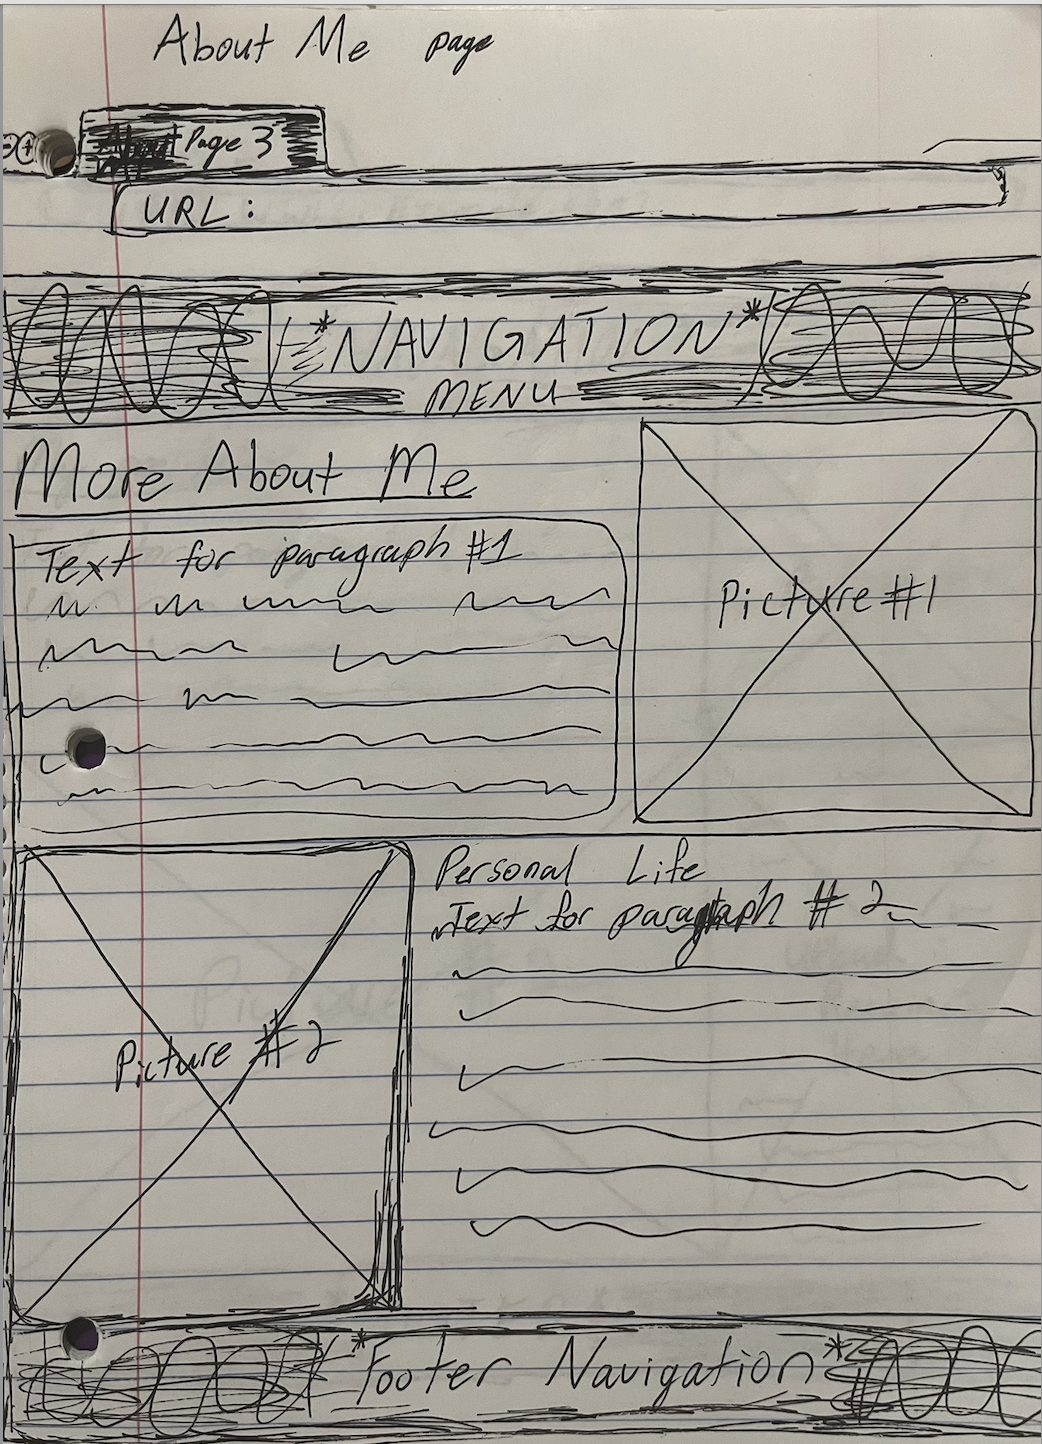 About Me page
Page 3
URL:
*NAVIGATION*
MENU
More About Me
Text for paragraph #1
Picture #1
Personal Life
Text for paragraph # 2
Picture #2
*Footer Navigation*